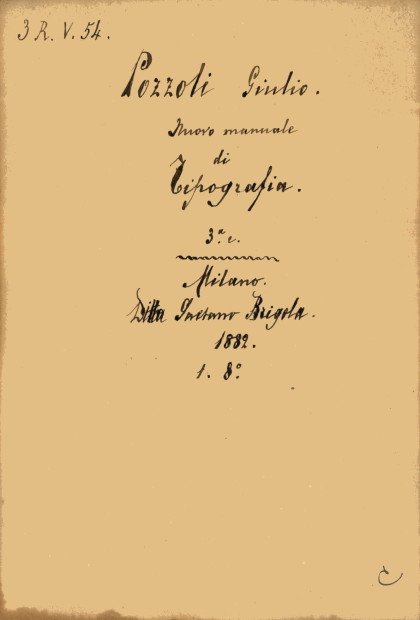 3 R. V. 54.
Pozzoli Giulio.
Nuovo manuale
di
Tipografia.
3ª e.
Milano.
Ditta Gaetano Brigola.
1882.
1. 8º